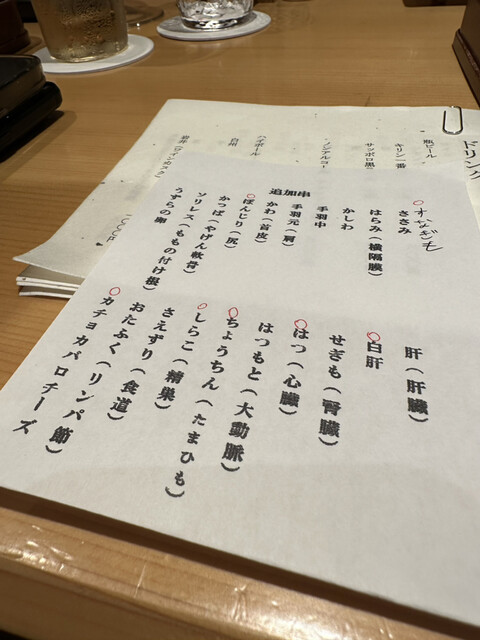 ドリンク
瓶ビール
キリン一番
サッポロ黒
ノンアルコー
ハイボール
白州
追加串
すなぎも
ささみ
はらみ(横隔膜)
かしわ
手羽中
手羽元(肩)
かわ(首皮)
ぼんじり(尻)
かっぱ(やげん軟骨)
ソリレス(ももの付け根)
うずらの卵
肝(肝臓)
白肝
せぎも(腎臓)
はつ(心臓)
はつもと(大動脈)
ちょうちん(たまひも)
しらこ(精巣)
さえずり(食道)
おたふく(リンパ節)
カチョカバロチーズ